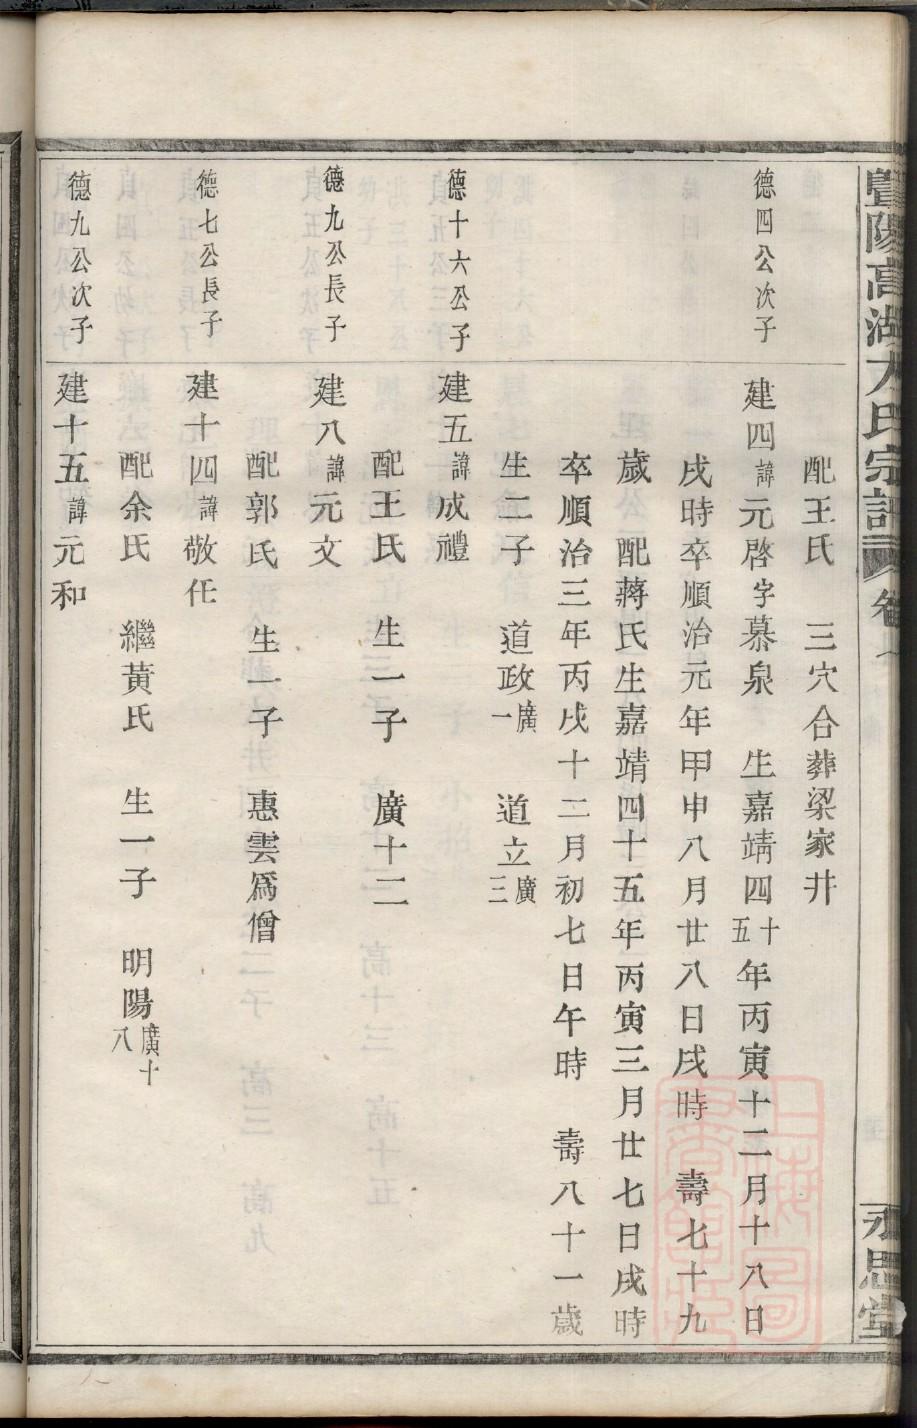 暨陽高湖方氏宗譜 卷
永思堂
配王氏 三穴合葬梁家井
德四公次子
建四諱元啓字慕泉 生嘉靖四十五年丙寅十二月十八日
戌時卒順治元年甲申八月廿八日戌時 壽七十九
歲 配蔣氏生嘉靖四十五年丙寅三月廿七日戌時
卒順治三年丙戌十二月初七日午時 壽八十一歲
生二子 道政廣一 道立廣三
德十六公子
建五諱成禮
配王氏 生一子 廣十二
德九公長子
建八諱元文
配郭氏 生一子 惠雲爲僧
德七公長子
建十四諱敬任
配余氏 繼黃氏 生一子 明陽廣十八
德九公次子
建十五諱元和